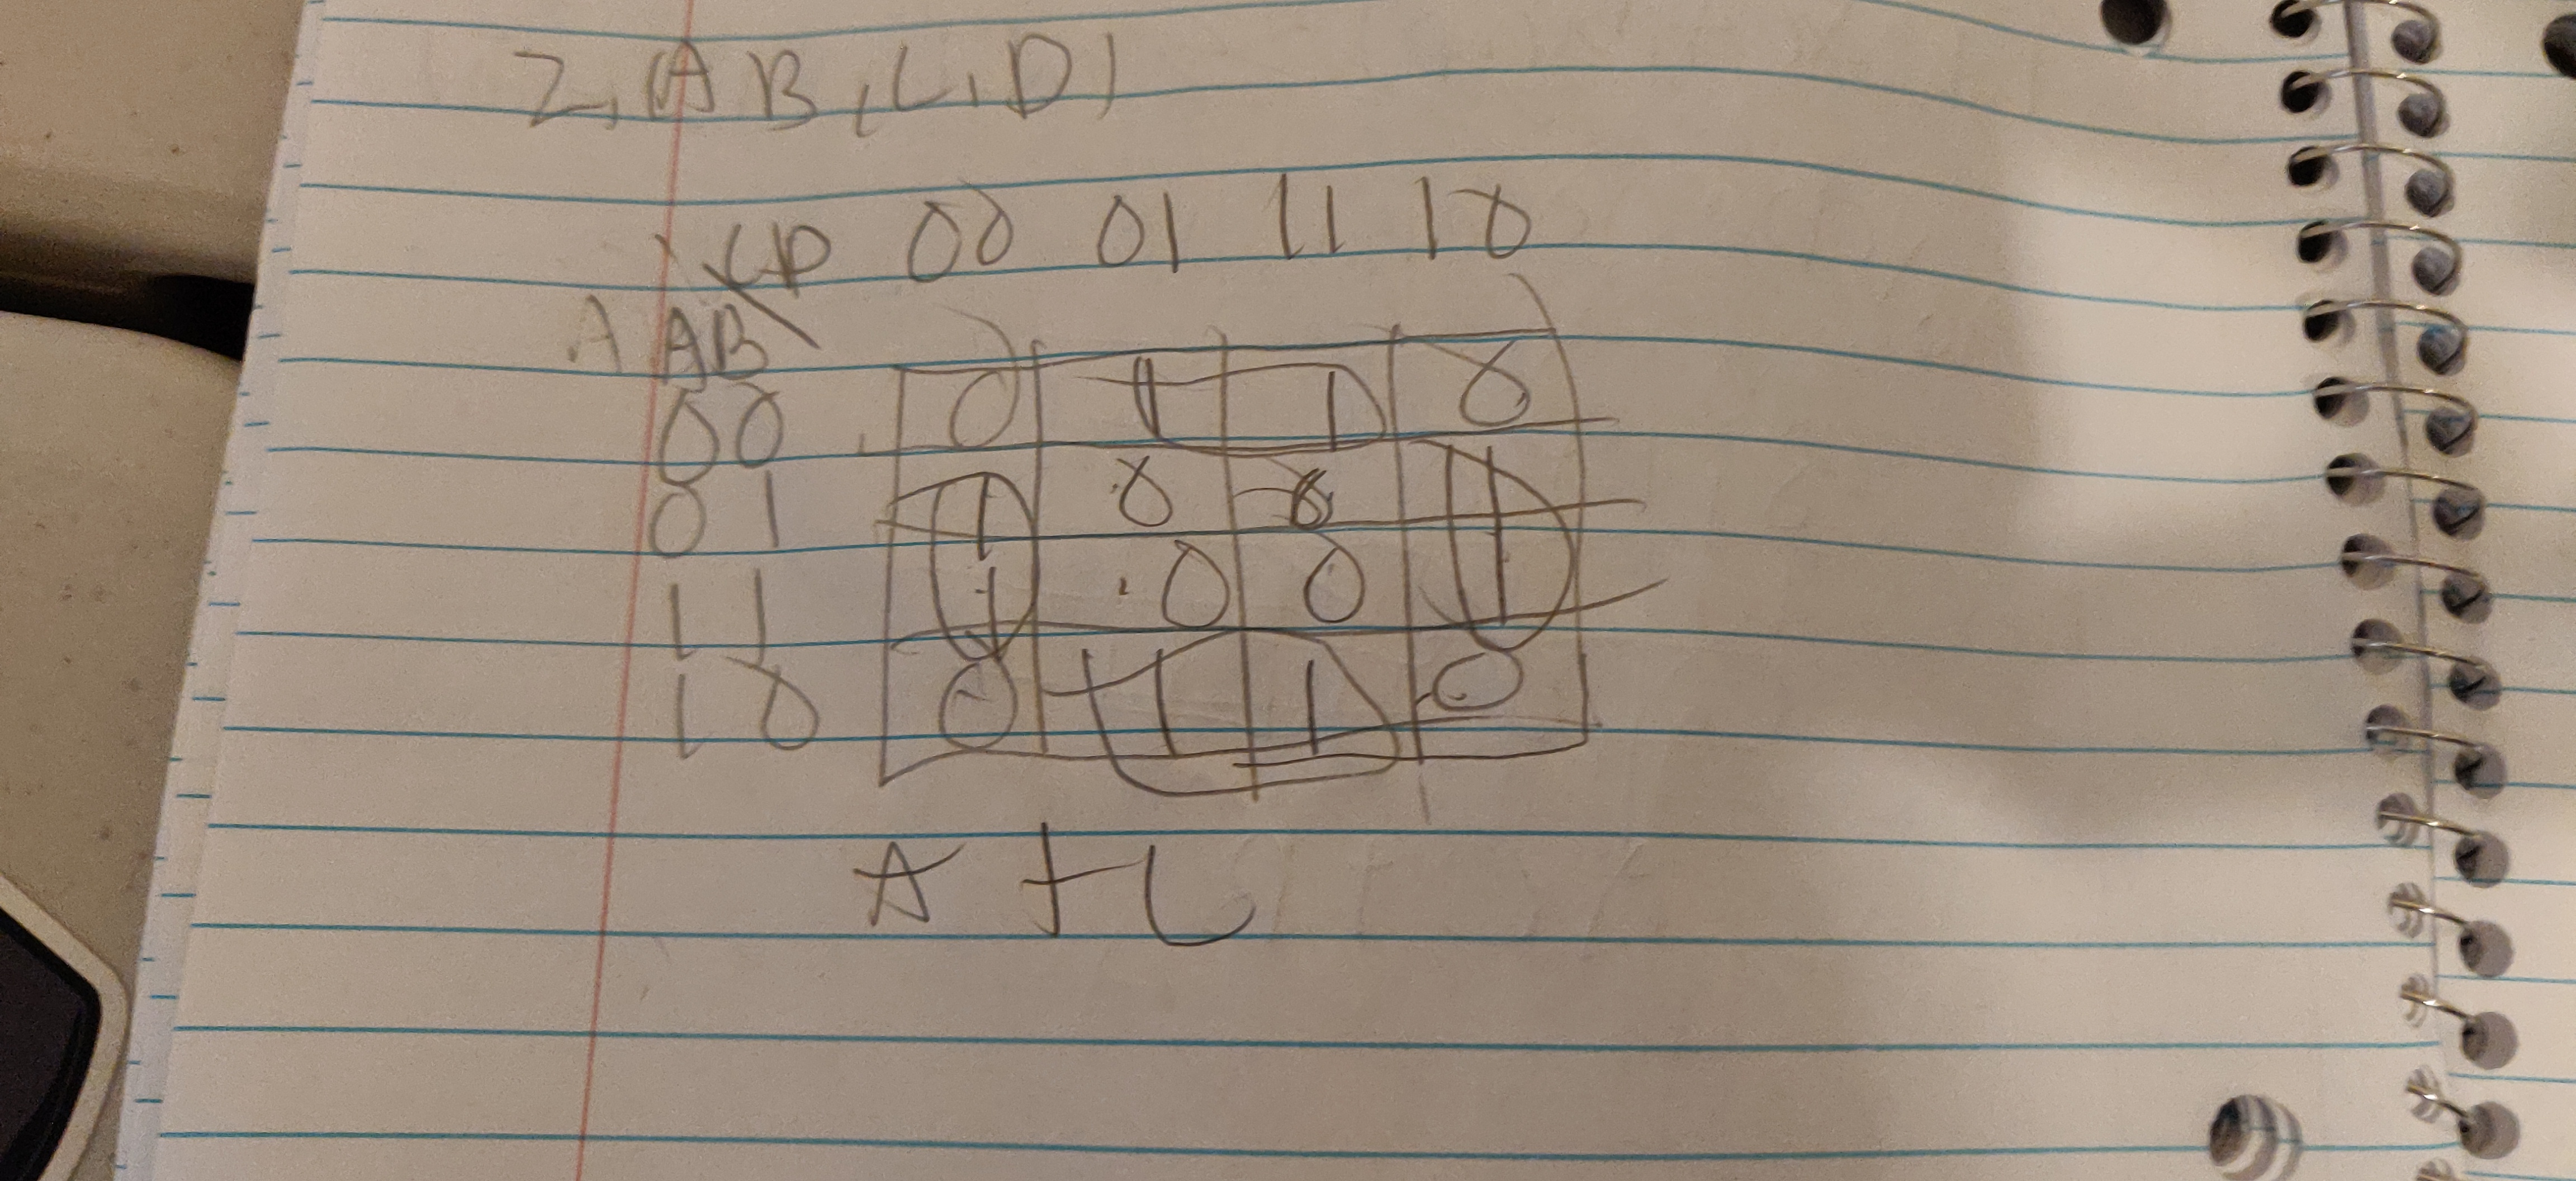 Z, (A B, C, D)
CD 00 01 11 10
A AB
00 0 1 1 0
01 1 0 0 1
11 1 0 0 1
10 0 1 1 0
A + C